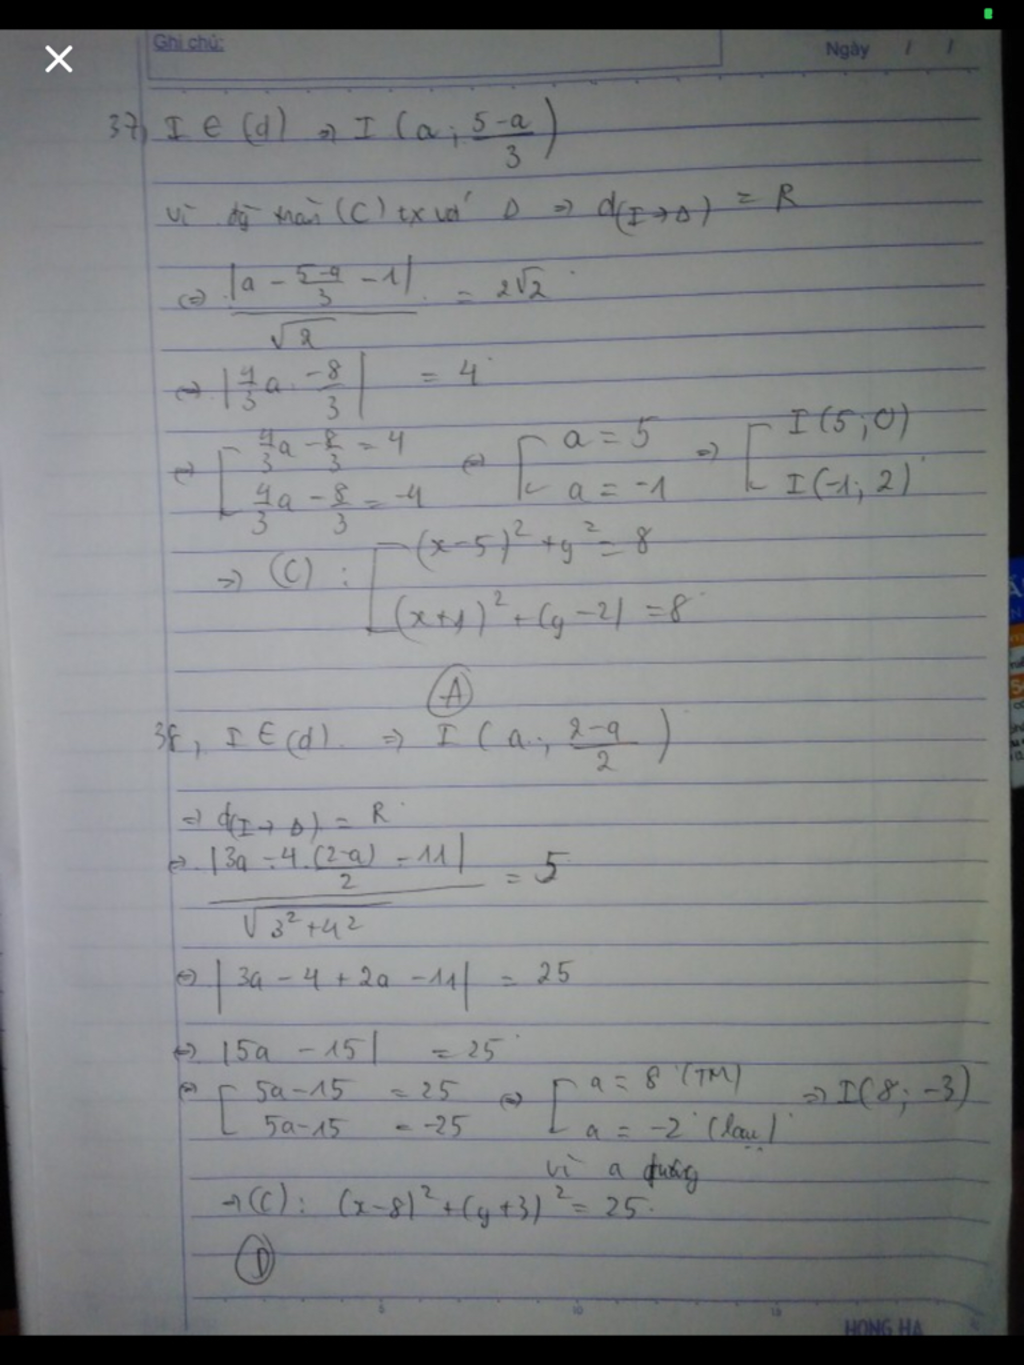 Ghi chú:
Ngày / /
37, I ∈ (d) => I (a; (5-a)/3)
vì đg tròn (C) tx với Δ => d(I→Δ) = R
<=> |a - (5-a)/3 - 1| / √2 = 2√2
<=> |4/3 a - 8/3| = 4
<=> [ 4/3 a - 8/3 = 4 <=> [ a = 5 => [ I(5;0)
4/3 a - 8/3 = -4 a = -1 I(-1; 2)
=> (C): [ (x-5)² + y² = 8
(x+1)² + (y-2) = 8
A
38, I ∈ (d) => I (a; (2-a)/2)
=> d(I→Δ) = R
<=> |3a - 4.(2-a)/2 - 11| / √3²+4² = 5
<=> |3a - 4 + 2a - 11| = 25
<=> |5a - 15| = 25
<=> [ 5a-15 = 25 <=> [ a = 8 (TM) => I(8; -3)
5a-15 = -25 a = -2 (loại)
vì a dương
=> (C): (x-8)² + (y+3)² = 25
D
5 10 15
HONG HA